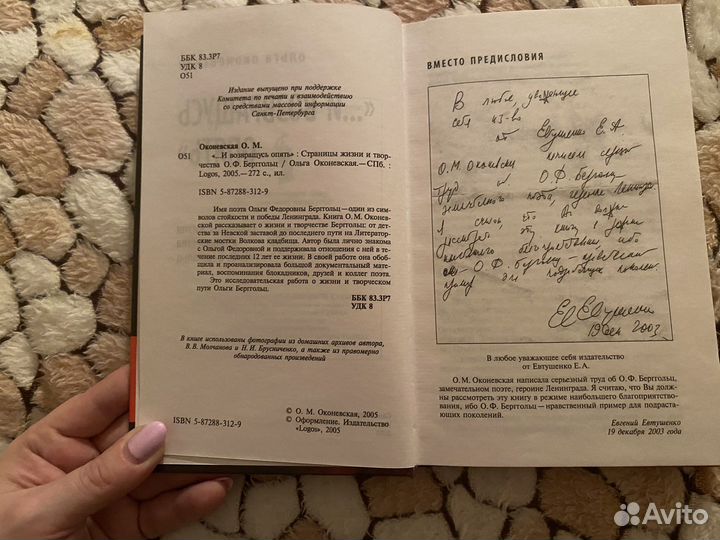 ББК 83.3Р7
УДК 8
О51
Издание выпущено при поддержке
Комитета по печати и взаимодействию
со средствами массовой информации
Санкт-Петербурга
Оконевская О. М.
О51 «...И возвращусь опять» : Страницы жизни и твор-
чества О.Ф. Берггольц / Ольга Оконевская.—СПб. :
Logos, 2005.—272 с., ил.
ISBN 5-87288-312-9
Имя поэта Ольги Федоровны Берггольц—один из сим-
волов стойкости и победы Ленинграда. Книга О.М. Оконев-
ской рассказывает о жизни и творчестве Берггольц: от
детства за Невской заставой до последнего пути на Литератор-
ские мостки Волкова кладбища. Автор была лично знакома
с Ольгой Федоровной и поддерживала отношения с ней в те-
чение последних 12 лет ее жизни. В своей работе она обоб-
щила и проанализировала большой документальный мате-
риал, воспоминания блокадников, друзей и коллег поэта.
Это исследовательская работа о жизни и творческом
пути Ольги Берггольц.
ББК 83.3Р7
УДК 8
В книге использованы фотографии из домашних архивов автора,
В.В. Молчанова и Н.И. Брусниченко, а также из правомерно
обнародованных произведений
ISBN 5-87288-312-9
© О. М. Оконевская, 2005
© Оформление. Издательство
«Logos», 2005
ВМЕСТО ПРЕДИСЛОВИЯ
В любое уважающее
себя изд-во
от Евтушенко Е. А.
О. М. Оконевская написала серьезн
труд о О. Ф. Берггольц
2003
В любое уважающее себя издательство
от Евтушенко Е.А.
О.М. Оконевская написала серьезный труд об О.Ф. Берггольц,
замечательном поэте, героине Ленинграда. Я считаю, что Вы должны
рассмотреть эту книгу в режиме наибольшего благоприятство-
вания, ибо О.Ф. Берггольц—нравственный пример для подрастаю-
щих поколений.
Евгений Евтушенко
19 декабря 2003 года
Avito